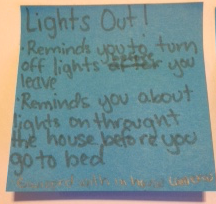 Lights Out!
• Reminds you to turn
off lights before you
leave
• Reminds you about
lights on throught
the house before you
go to bed